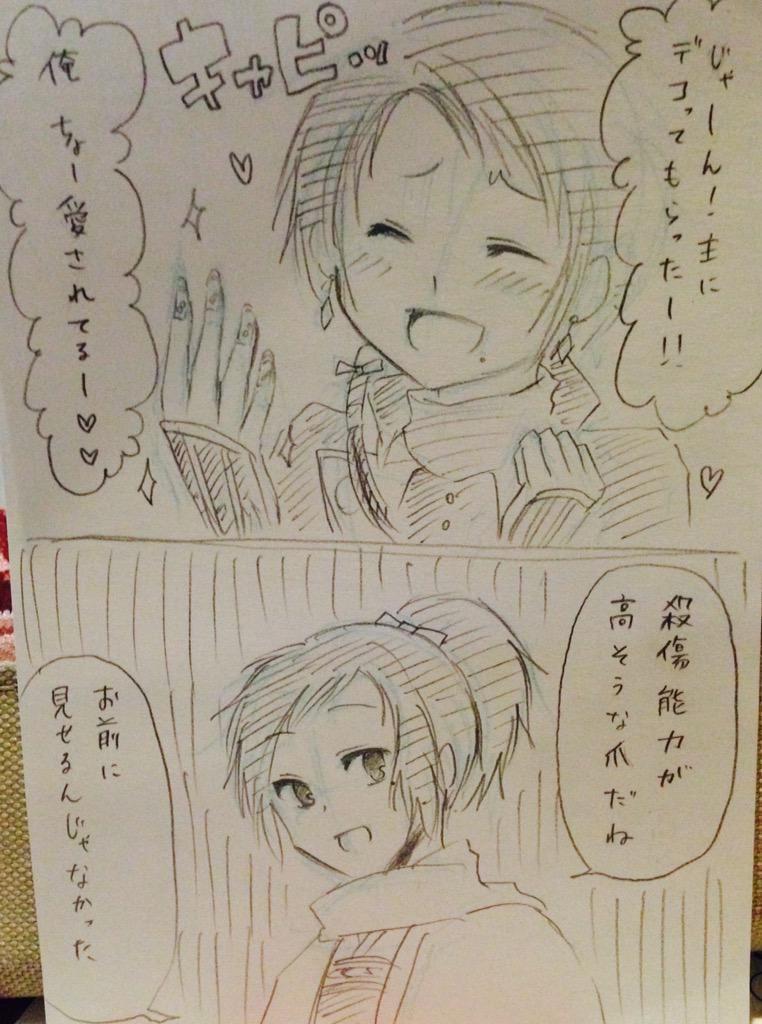 じゃーん!主に
デコってもらったー!!
キャピ…
俺 ちょー愛されてるー♡♡
殺傷能力が
高そうな爪だね
お前に
見せるんじゃなかった